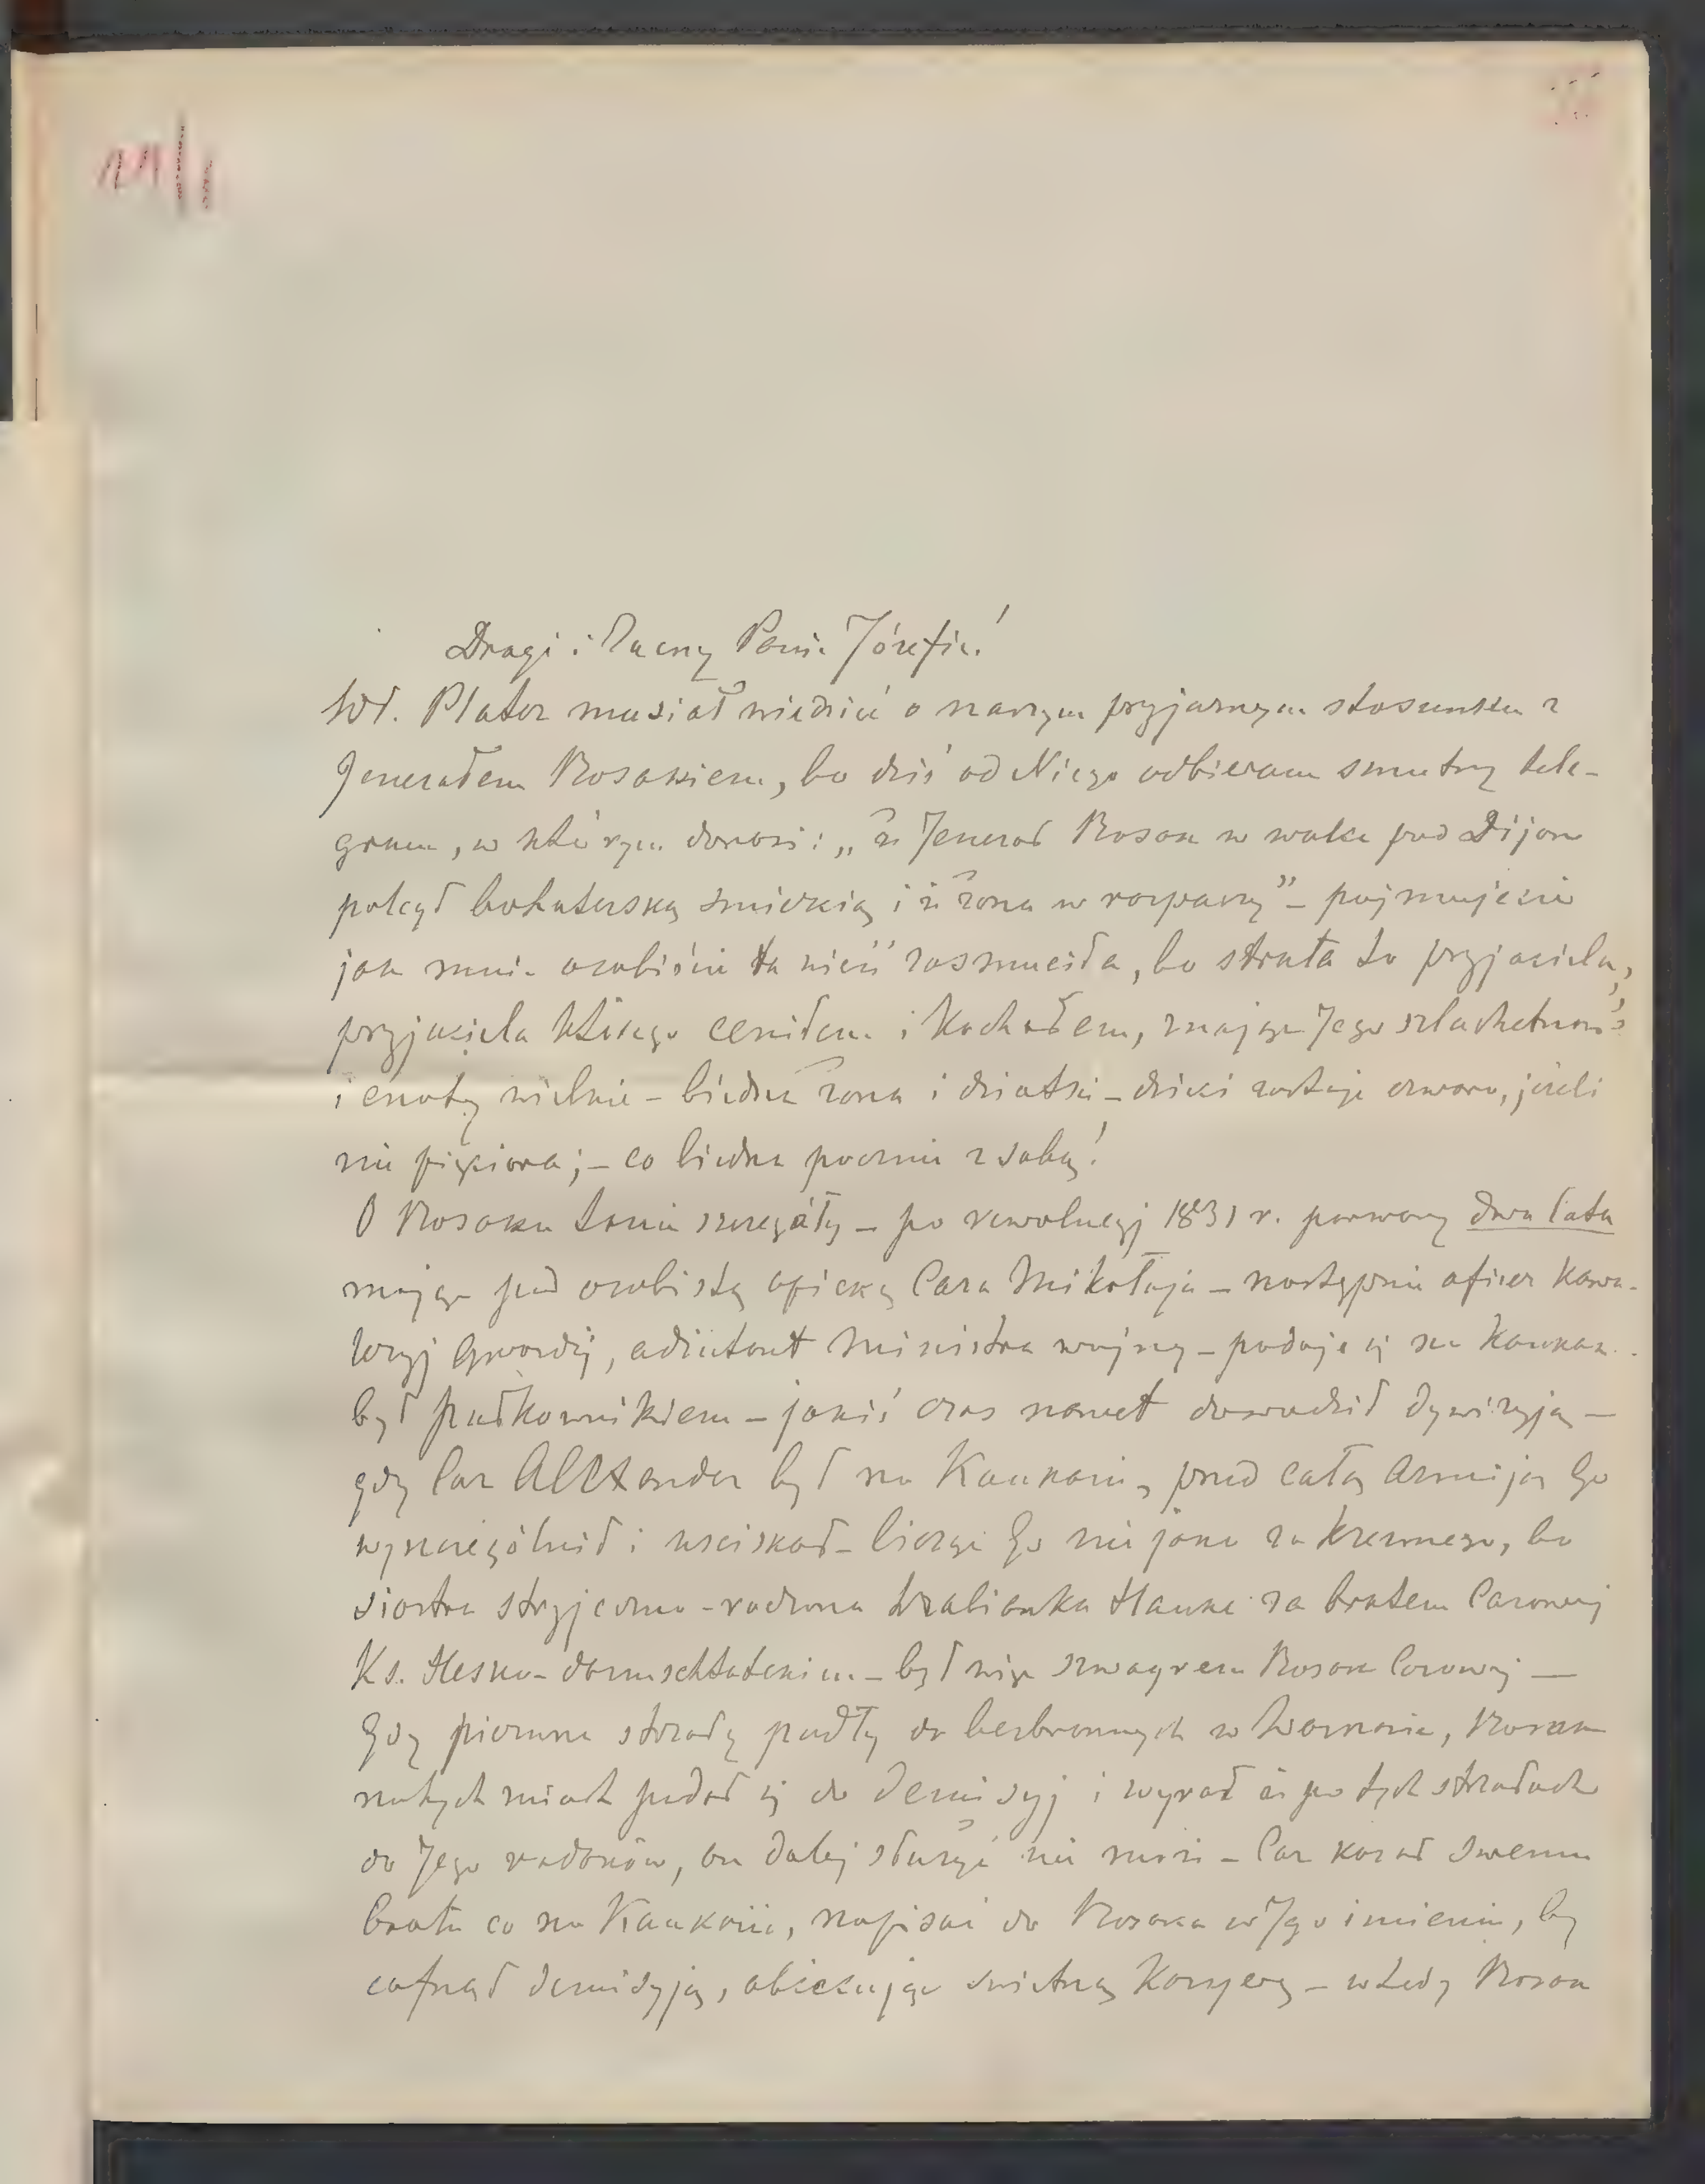 Drogi i Zacny Panie Józefie!
Wł. Plater musiał wiedzieć o naszym przyjaznym stosunku z
Jenerałem Bosakiem, bo dziś od Niego odbieram smutny tele-
gram, w którym donosi: „że Jenerał Bosak w walce pod Dijon
poległ bohaterską śmiercią i że żona w rozpaczy” – pojmujecie
jak mnie osobiście ta wieść zasmuciła, bo strata to przyjaciela,
przyjaciela którego ceniłem i kochałem, znając Jego szlachetność
i cnoty wielkie – biedna żona i dziatki – dzieci zostaje czworo, jeżeli
nie pięcioro; – co biedna pocznie z sobą!
O Bosaku szczegóły – po rewolucyj 1831 r. porwany dwa lata
mając pod osobistą opieką Cara Mikołaja – następnie oficer kawa-
leryj Gwardyj, adiutant Ministra wojny – podaje się na Kaukaz
był pułkownikiem – jakiś czas nawet dowodził dywizyją –
gdy Car Alexander był na Kaukazie, przed całą armiją Go
wyszczególnił i uściskał – licząc Go niejako za krewnego, bo
siostra stryjeczno-rodzona hrabianka Hauke za bratem Carowej
Ks. Hesko-darmschtatskim – był więc szwagrem Bosak Carowej —
Gdy pierwsze strzały padły do bezbronnych w Warszawie, Bosak
natychmiast podał się do demisyj i wyraził że po tych strzałach
do Jego rodaków, on dalej służyć nie może – Car kazał swemu
bratu co na Kaukazie, napisać do Bosaka w Jego imieniu, by
cofnął demisyją, obiecując świetną karyerę – wtedy Bosak